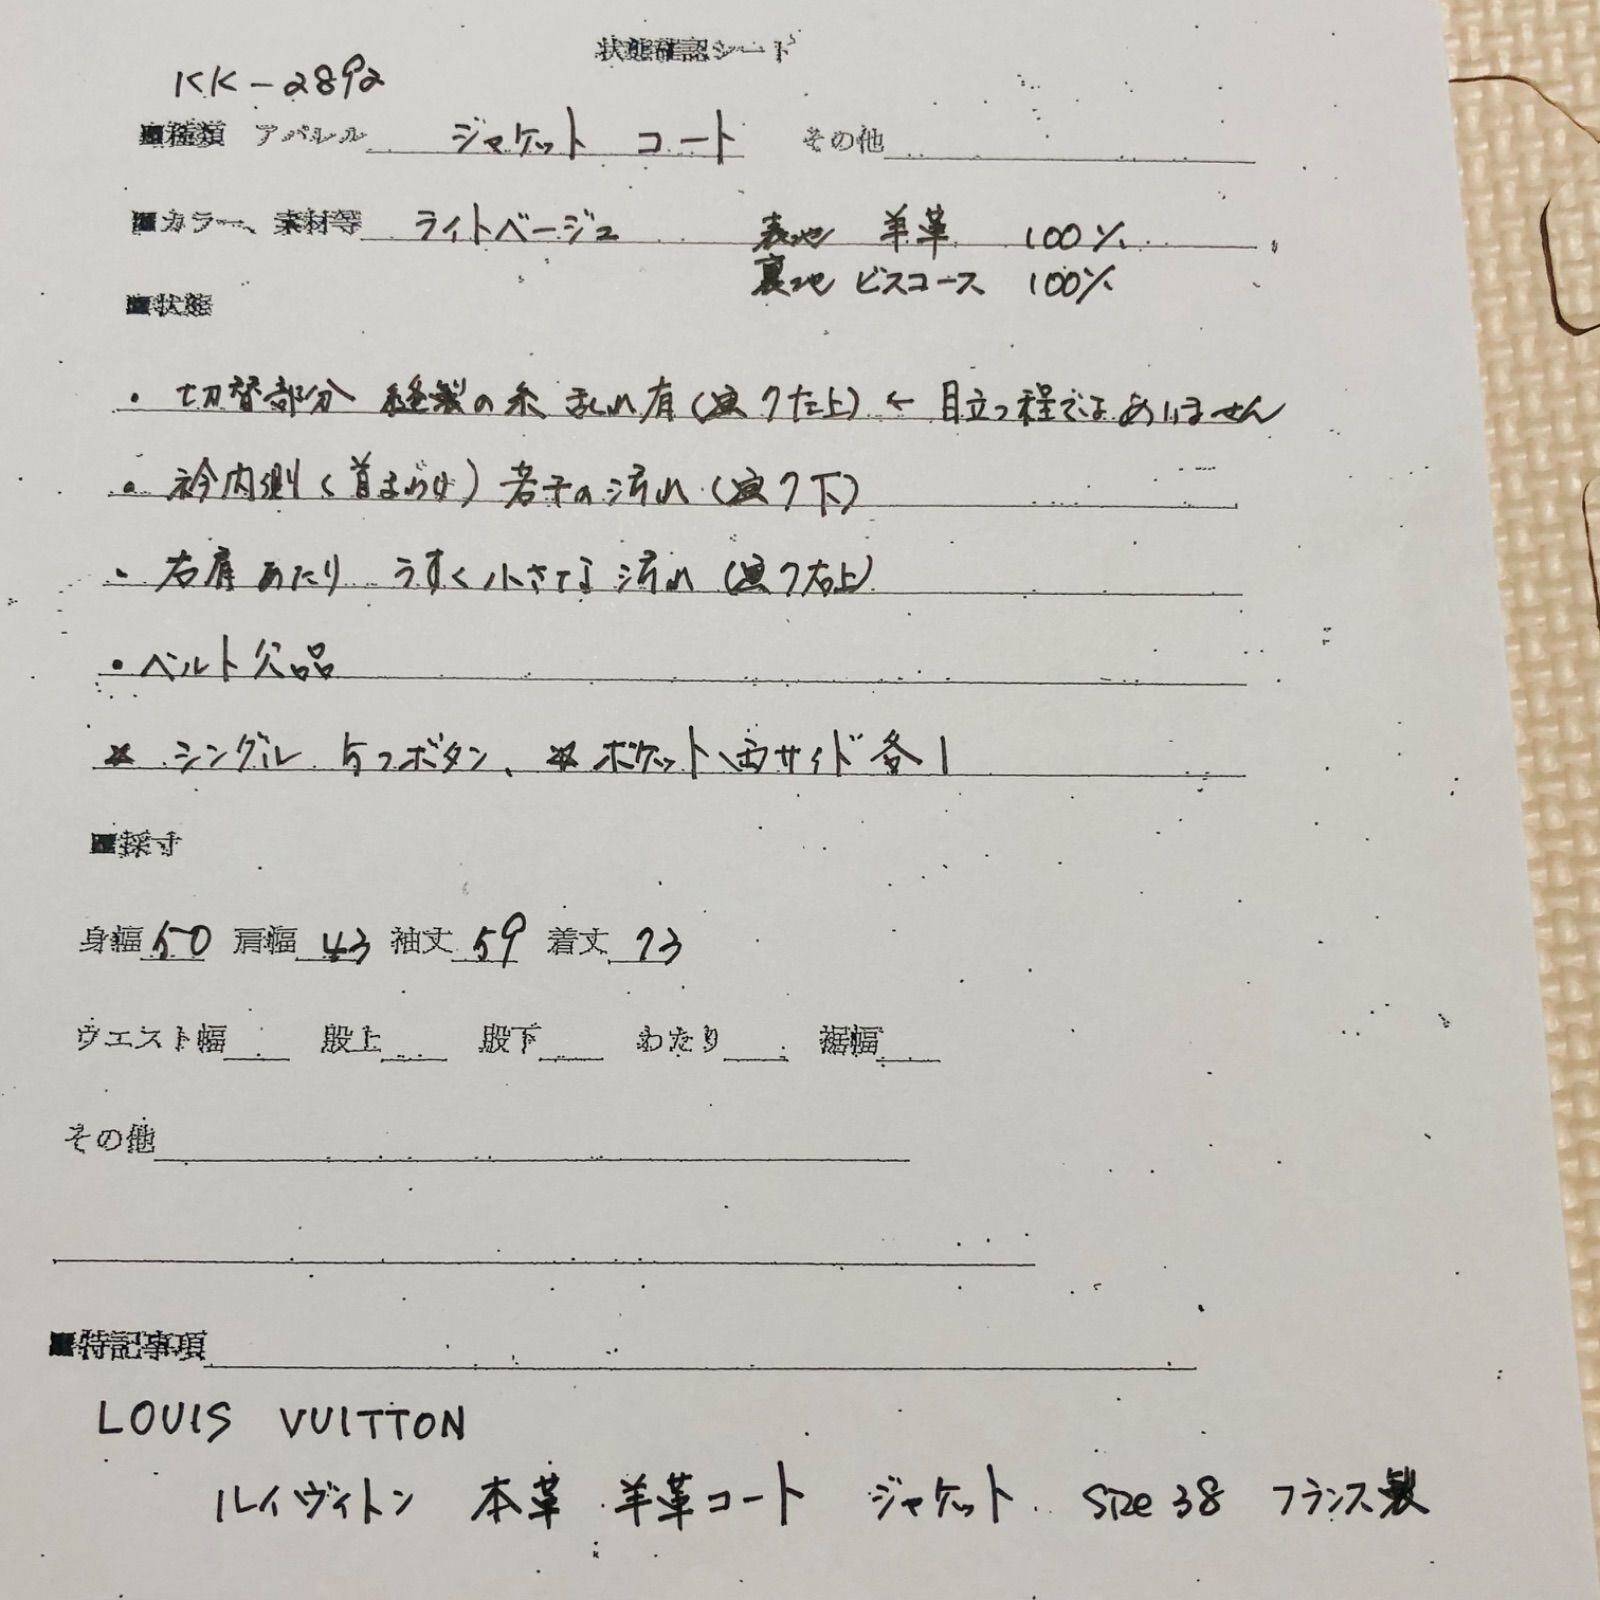 状態確認シート
KK-2892
■種類 アパレル ジャケット コート その他
■カラー、素材等 ライトベージュ 表地 羊革 100%
裏地 ビスコース 100%
■状態
・切替部分 縫製の糸 乱れ有(画7左上) ← 目立つ程ではありません
・衿内側(首まわり) 若干の汚れ(画7下)
・右肩あたり うすく小さな汚れ(画7右上)
・ベルト欠品
* シングル 5つボタン、* ポケット両サイド各1
■採寸
身幅 50 肩幅 43 袖丈 59 着丈 73
ウエスト幅 股上 股下 わたり 裾幅
その他
■特記事項
LOUIS VUITTON
ルイヴィトン 本革 羊革コート ジャケット size 38 フランス製